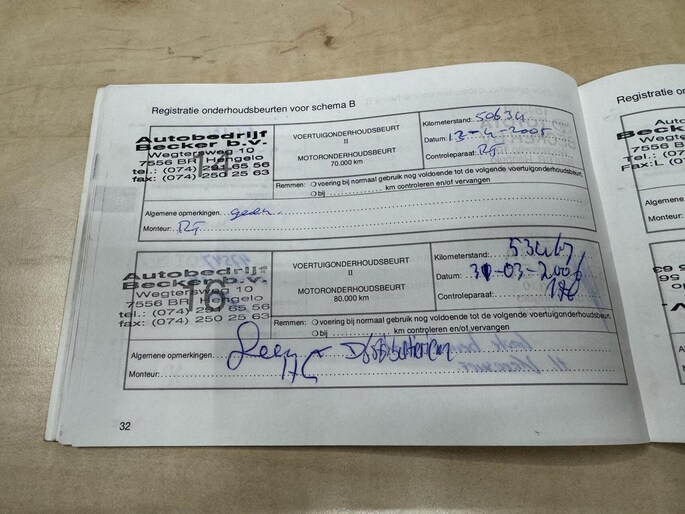 Registratie onderhoudsbeurten voor schema B
Autobedrijf
Becker b.v.
Wegtersweg 10
7556 BR Hengelo
tel.: (074) 250 65 56
fax: (074) 250 25 63
VOERTUIGONDERHOUDSBEURT
II
MOTORONDERHOUDSBEURT
70.000 km
Kilometerstand: 50634
Datum: 13-4-2005
Controleparaaf: RT
Remmen: voering bij normaal gebruik nog voldoende tot de volgende voertuigonderhoudsbeurt,
bij km controleren en/of vervangen
Algemene opmerkingen geen
Monteur: RT
Autobedrijf
Becker b.v.
Wegtersweg 10
7556 BR Hengelo
tel.: (074) 250 65 56
fax: (074) 250 25 63
16
VOERTUIGONDERHOUDSBEURT
II
MOTORONDERHOUDSBEURT
80.000 km
Kilometerstand: 53467
Datum: 31-03-2006
Controleparaaf:
Remmen: voering bij normaal gebruik nog voldoende tot de volgende voertuigonderhoudsbeurt,
bij km controleren en/of vervangen
Algemene opmerkingen
Monteur:
32
Registratie